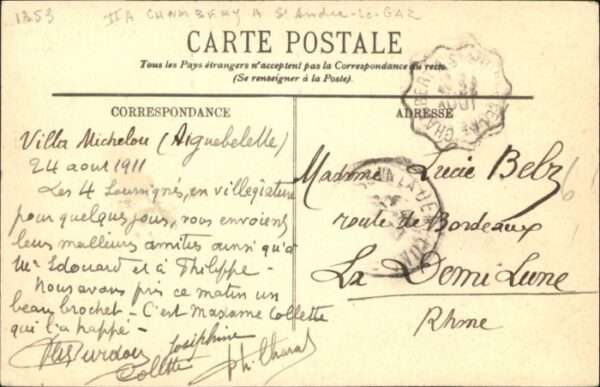 1353 IIA CHAMBERY A St André-le-GAZ
CARTE POSTALE
Tous les Pays étrangers n'acceptent pas la Correspondance au recto.
(Se renseigner à la Poste).
CORRESPONDANCE
Villa Michelou (Aiguebelette)
24 aout 1911
Les 4 soussignés, en villégiature
pour quelques jours, vous envoient
leurs meilleurs amitiés ainsi qu'à
Mr Edouard et à Philippe -
Nous avons pris ce matin un
beau brochet - C'est Madame Collette
qui l'a happé -
Joséphine
Collette
ADRESSE
Madame Lucie Belz
route de Bordeaux
La Demi Lune
Rhône